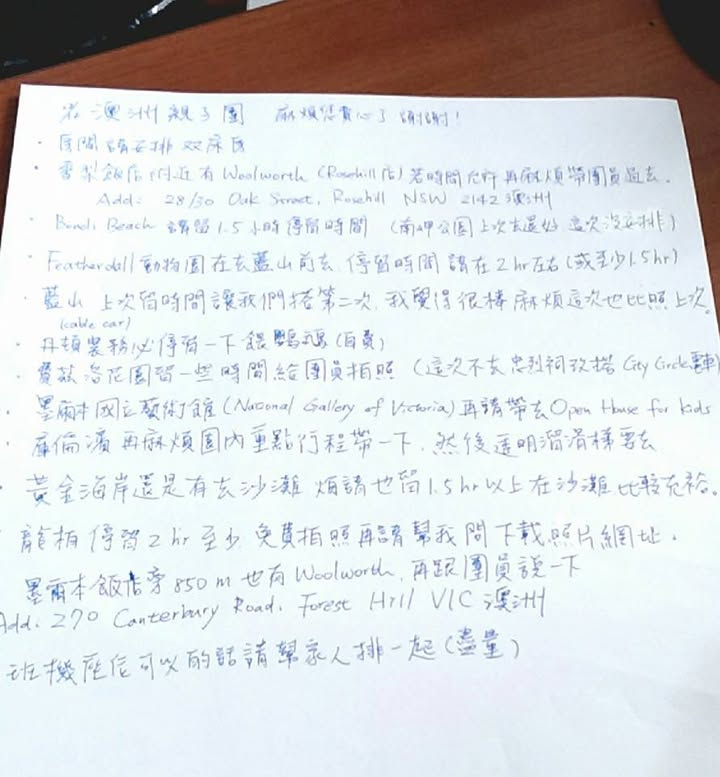 岩澳洲親子團 麻煩您費心了 謝謝!
· 房間請安排双床房
· 雪梨飯店附近有 Woolworth (Rosehill店) 若時間允許再麻煩帶團員過去.
Add: 28/30 Oak Street, Rosehill NSW 2142 澳洲
· Bondi Beach 請留1.5小時停留時間 (南岬公園上次去還好 這次沒安排)
· Featherdall 動物園在去藍山前去, 停留時間請在2hr左右(或至少1.5hr)
· 藍山 上次留時間讓我們搭第二次, 我覺得很棒 麻煩這次也比照上次.
(cable car)
· 丹頓農務必停留一下餵鸚鵡(自費)
· 費茲洛花園留一些時間給團員拍照 (這次不去忠烈祠改搭 City Circle電車)
· 墨爾本國立藝術館 (National Gallery of Victoria) 再請帶去 Open House for kids
· 庫倫濱 再麻煩園內重點行程帶一下, 然後透明溜滑梯要去
· 黃金海岸還是有去沙灘 煩請也留1.5hr以上在沙灘比較充裕.
· 龍柏 停留2hr至少, 免費拍照再請幫我問下載照片網址.
墨爾本飯店旁850m也有Woolworth, 再跟團員說一下
Add: 270 Canterbury Road, Forest Hill VIC 澳洲
班機座位可以的話請幫家人排一起(盡量)